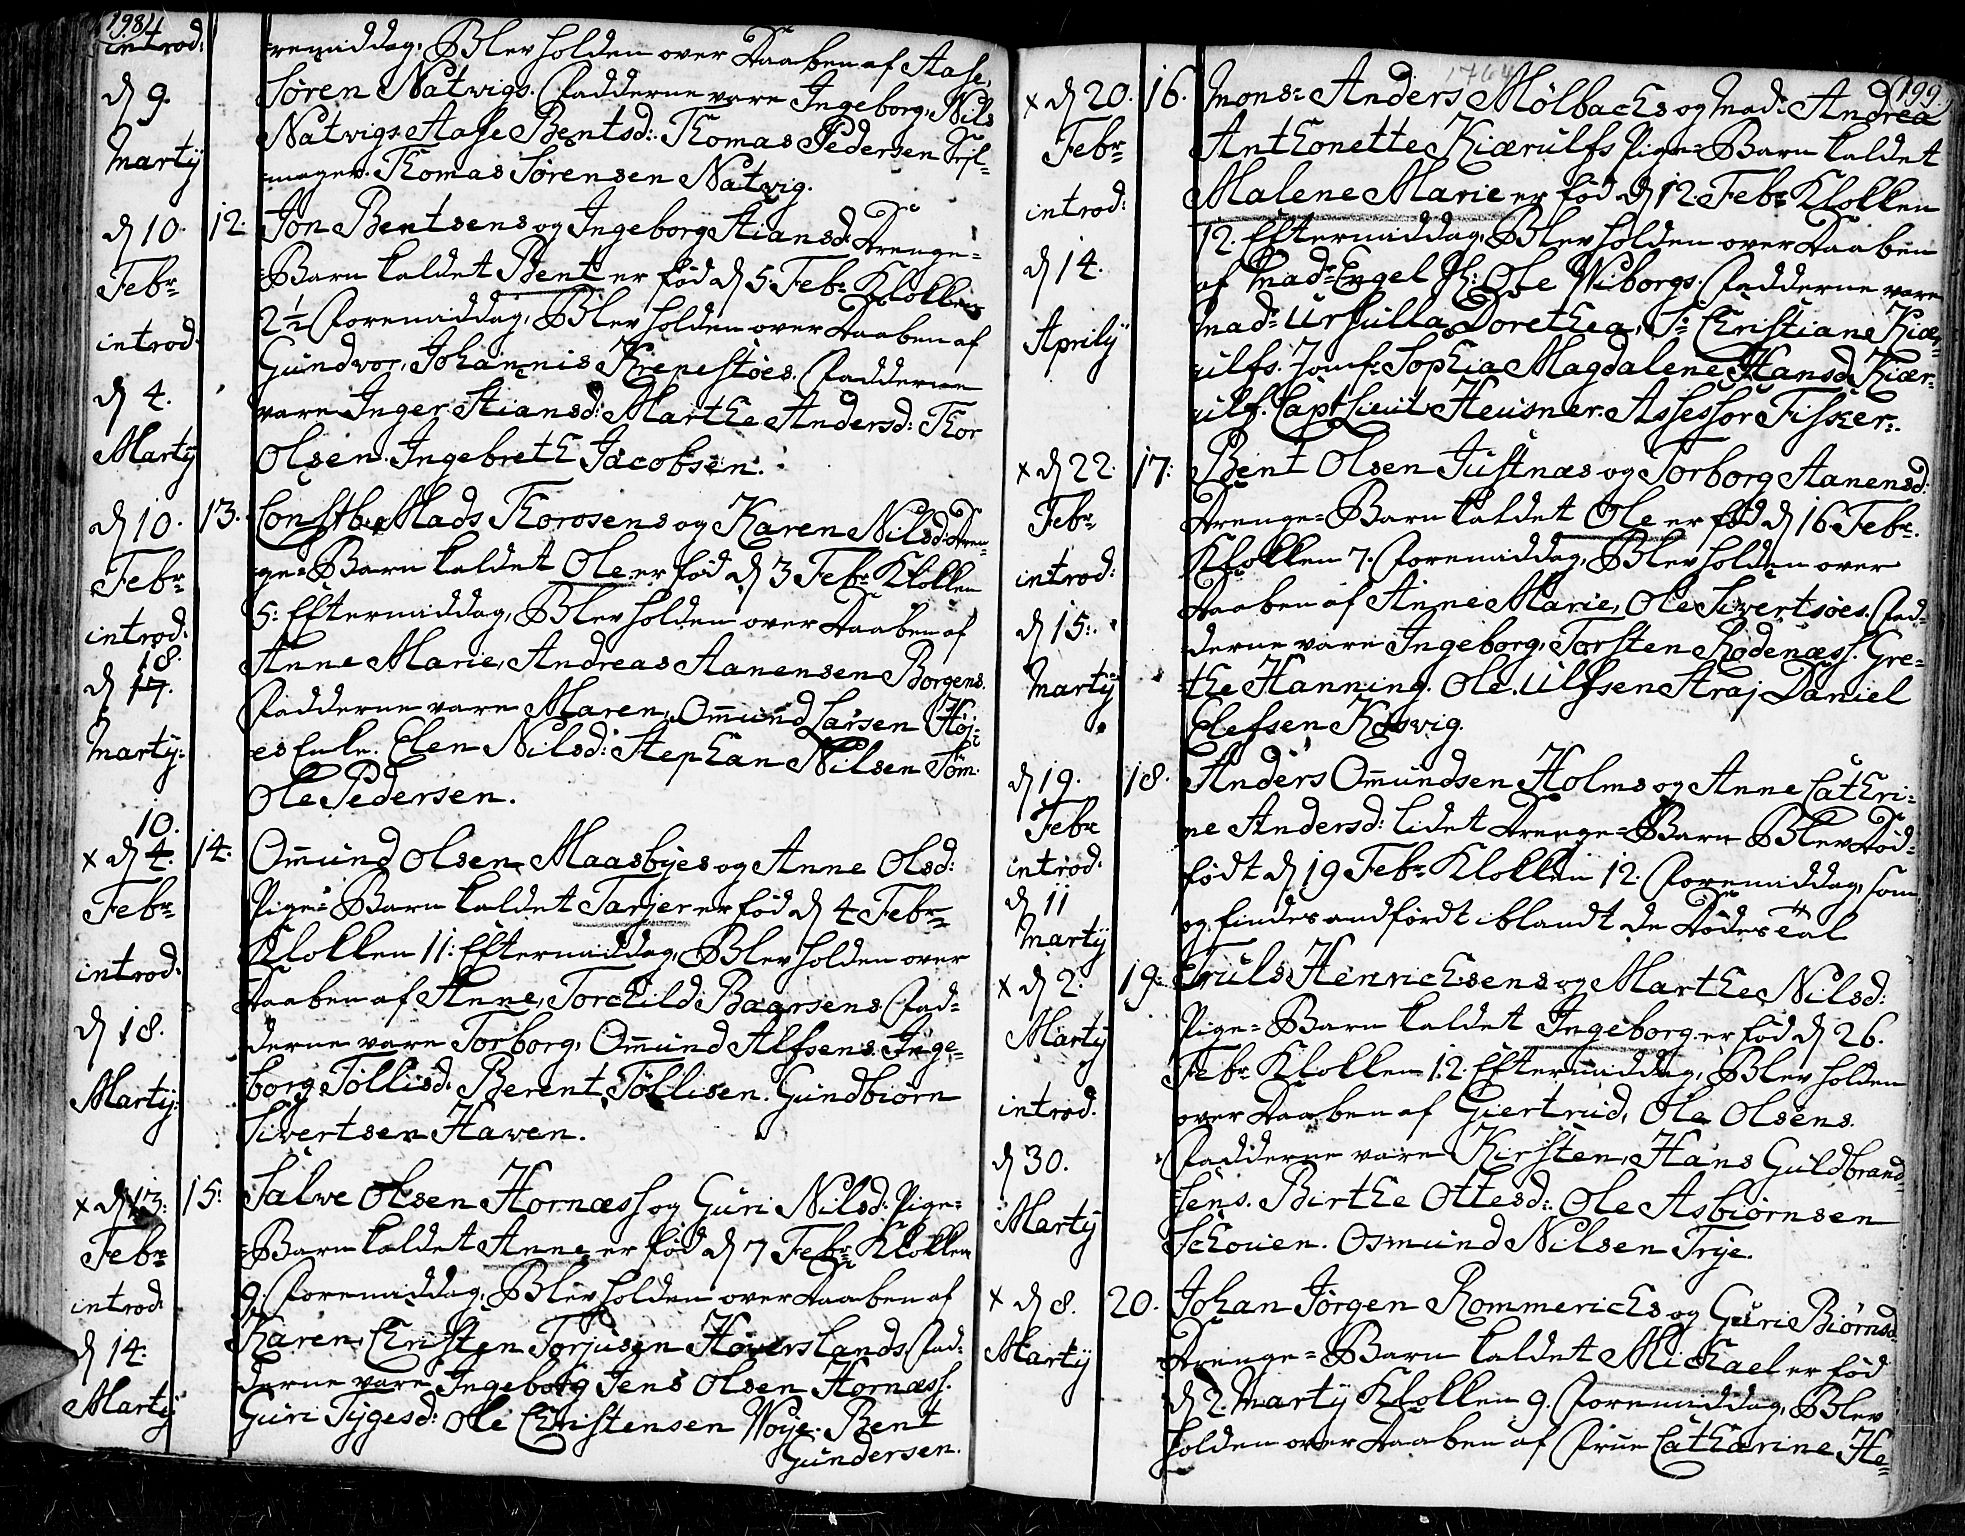 198.
introd:
d 9.
Martij
=remiddag, Blev holden over Daaben af Aase,
Søren Natvigs. Fadderne vare Ingeborg, Nils
Natvigs. Aase Bentsd: Thomas Pedersen
=mager. Thomas Sørensen Natvig.
d 10. 12.
Febr
introd.
d 4.
Marty
Jon Bentsens og Ingeborg Stiansd: Drenge=
=Barn kaldet Bent er fød d 5 Febr Klokken
2½ Formiddag, Blev holden over Daaben af
Gundvor, Johannis Krenestøes. Fadderne
vare Inger Stiansd: Marthe Andersd: Thor
Olsen. Ingebreth Jacobsen.
d 10. 13.
Febr
introd:
18.
d 17.
Marty:
Constb. Mads Thorosens og Karen Nilsd: Dren=
ge=Barn kaldet Ole er fød d 3 Febr Klokken
5: Eftermiddag, Blev holden over Daaben af
Anne Marie, Andreas Aanensen Borgens.
Fadderne vare Maren, Omund Larsen Høj=
es Enke. Elen Nilsd: Stephan Nilsen Tøm.
Ole Pedersen.
10.
x d 4. 14.
Febr
introd:
d 18.
Marty:
Omund Olsen Maasbyes og Anne Olsd:
Pige=Barn kaldet Tarjer er fød d 4 Febr
Klokken 11: Eftermiddag, Blev holden over
Daaben af Anne, Torchild Baarsens. Fad=
derne vare Torborg, Omund Alfsens. Inge=
borg Tøllisd: Berent Tøllisen. Gundbiørn
Sivertsen Haven.
x d 13: 15:
Febr
introd:
d 14:
Marty
Salve Olsen Hornæss og Guri Nilsd: Pige=
=Barn kaldet Anne er fød d 7 Febr Klokken
9: Formiddag, Blev holden over Daaben af
Karen, Christen Torjusen Høverslands. Fad=
derne vare Ingeborg Jens Olsen Hornæss.
Guri Tygesd: Ole Christensen Woye. Bent
Gundersen.
1764
199.
x d 20. 16.
Febr
introd:
d 14.
Aprily
Mons: Anders Mølbachs og Mad: Andrea
Anthonette Kiærulfs Pige=Barn kaldet
Malene Marie er fød d 12 Febr Klokken
12. Eftermiddag, Blev holden over Daaben
af Mad: Engel Sl: Ole Wiborgs. Fadderne vare
Mad: Ursulla Dorethea, Sr Christiane Kiær=
ulfs. Jomf: Sophia Magdalene Hansd Kiær=
ulf. Capt Lieut Heusner. Assessor Fisker.
x d 22. 17:
Febr
introd:
d 15:
Marty
Bent Olsen Justnæs og Torborg Aanensd:
Drenge=Barn kaldet Ole er fød d 16 Febr.
Klokken 7. Formiddag, Blev holden over
Daaben af Anne Marie, Ole Sivertsøes. Fad=
derne vare Ingeborg, Torsten Rodenæss. Gre=
the Hanning. Ole Ulfsen Straj. Daniel
Elefsen Kosvig.
d 19. 18.
Febr
introd:
d 11
Marty
Anders Omundsen Holms og Anne Cathri=
ne Andersd: lidet Drenge=Barn Blev Død=
født d 19 Febr Klokken 12. Formiddag, som
og findes andført iblandt de Dødes Tal
x d 2. 19:
Marty
introd.
d 30.
Marty
Truls Henrichsens og Marthe Nilsd:
Pige=Barn kaldet Ingeborg er fød d 26.
Febr Klokken 12. Eftermiddag, Blev holden
over Daaben af Giertrud, Ole Olsens.
Fadderne vare Kirsten, Hans Guldbrand=
sens. Birthe Ottesd: Ole Asbiørnsen
Schouen. Osmund Nilsen Trye.
x d 8. 20.
Marty
Johan Jørgen Rommerichs og Guri Biørnsd:
Drenge=Barn kaldet Michael er fød
d 2. Marty Klokken 9. Formiddag, Blev
holden over Daaben af Frue Catharine He=